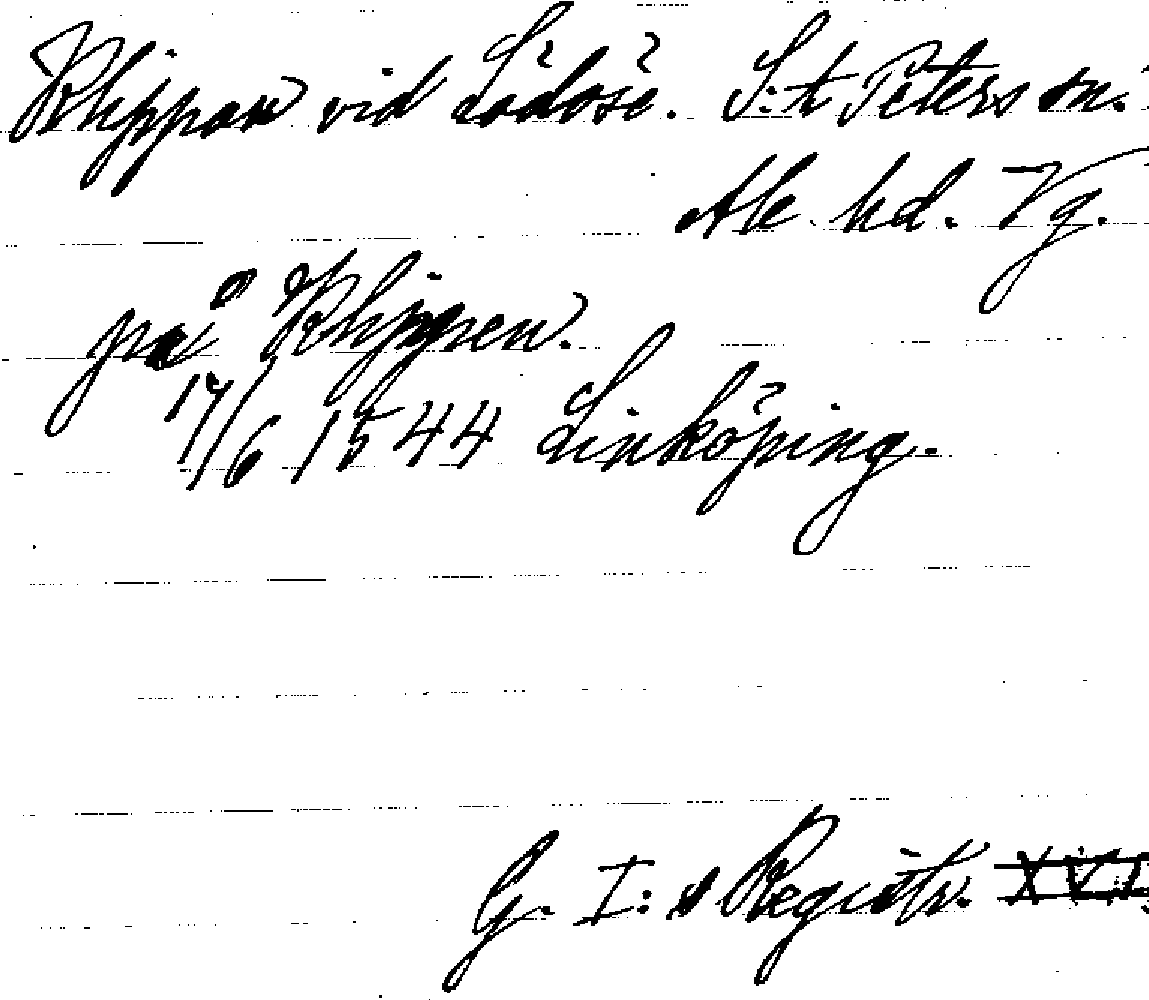 Klippan vid Lödöse. S:t Peters sn.
Ale hd. Vg.
på Klippen.
17/6 1544 Linköping.
G. I:s Registr. XVI.